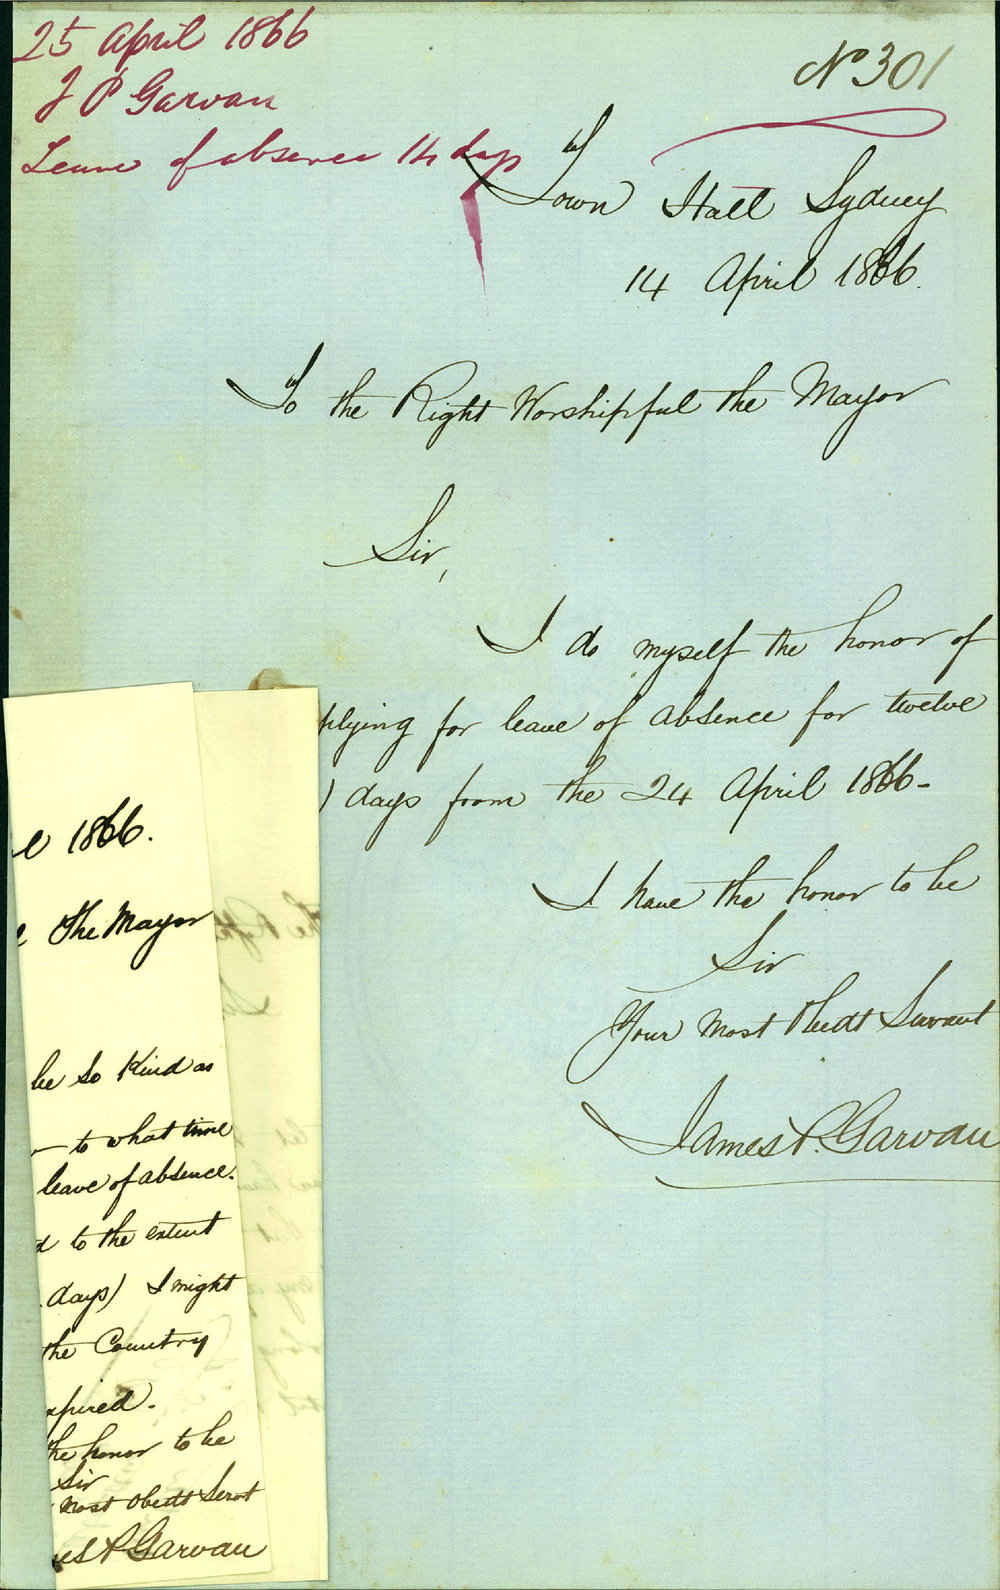 25 April 1866
J P Garvan
Leave of absence 14 days
No 301
Town Hall Sydney
14 April 1866.
To the Right Worshipful the Mayor
Sir,
I do myself the honor of
plying for leave of absence for twelve
) days from the 24 April 1866-
I have the honor to be
Sir
Your Most Obedt Servant
James P. Garvan
1866.
The Mayor
be so kind as
to what time
leave of absence.
d to the extent
days) I might
the Country
xpired.
the honor to be
Sir
Most Obedt Servt
es P Garvan